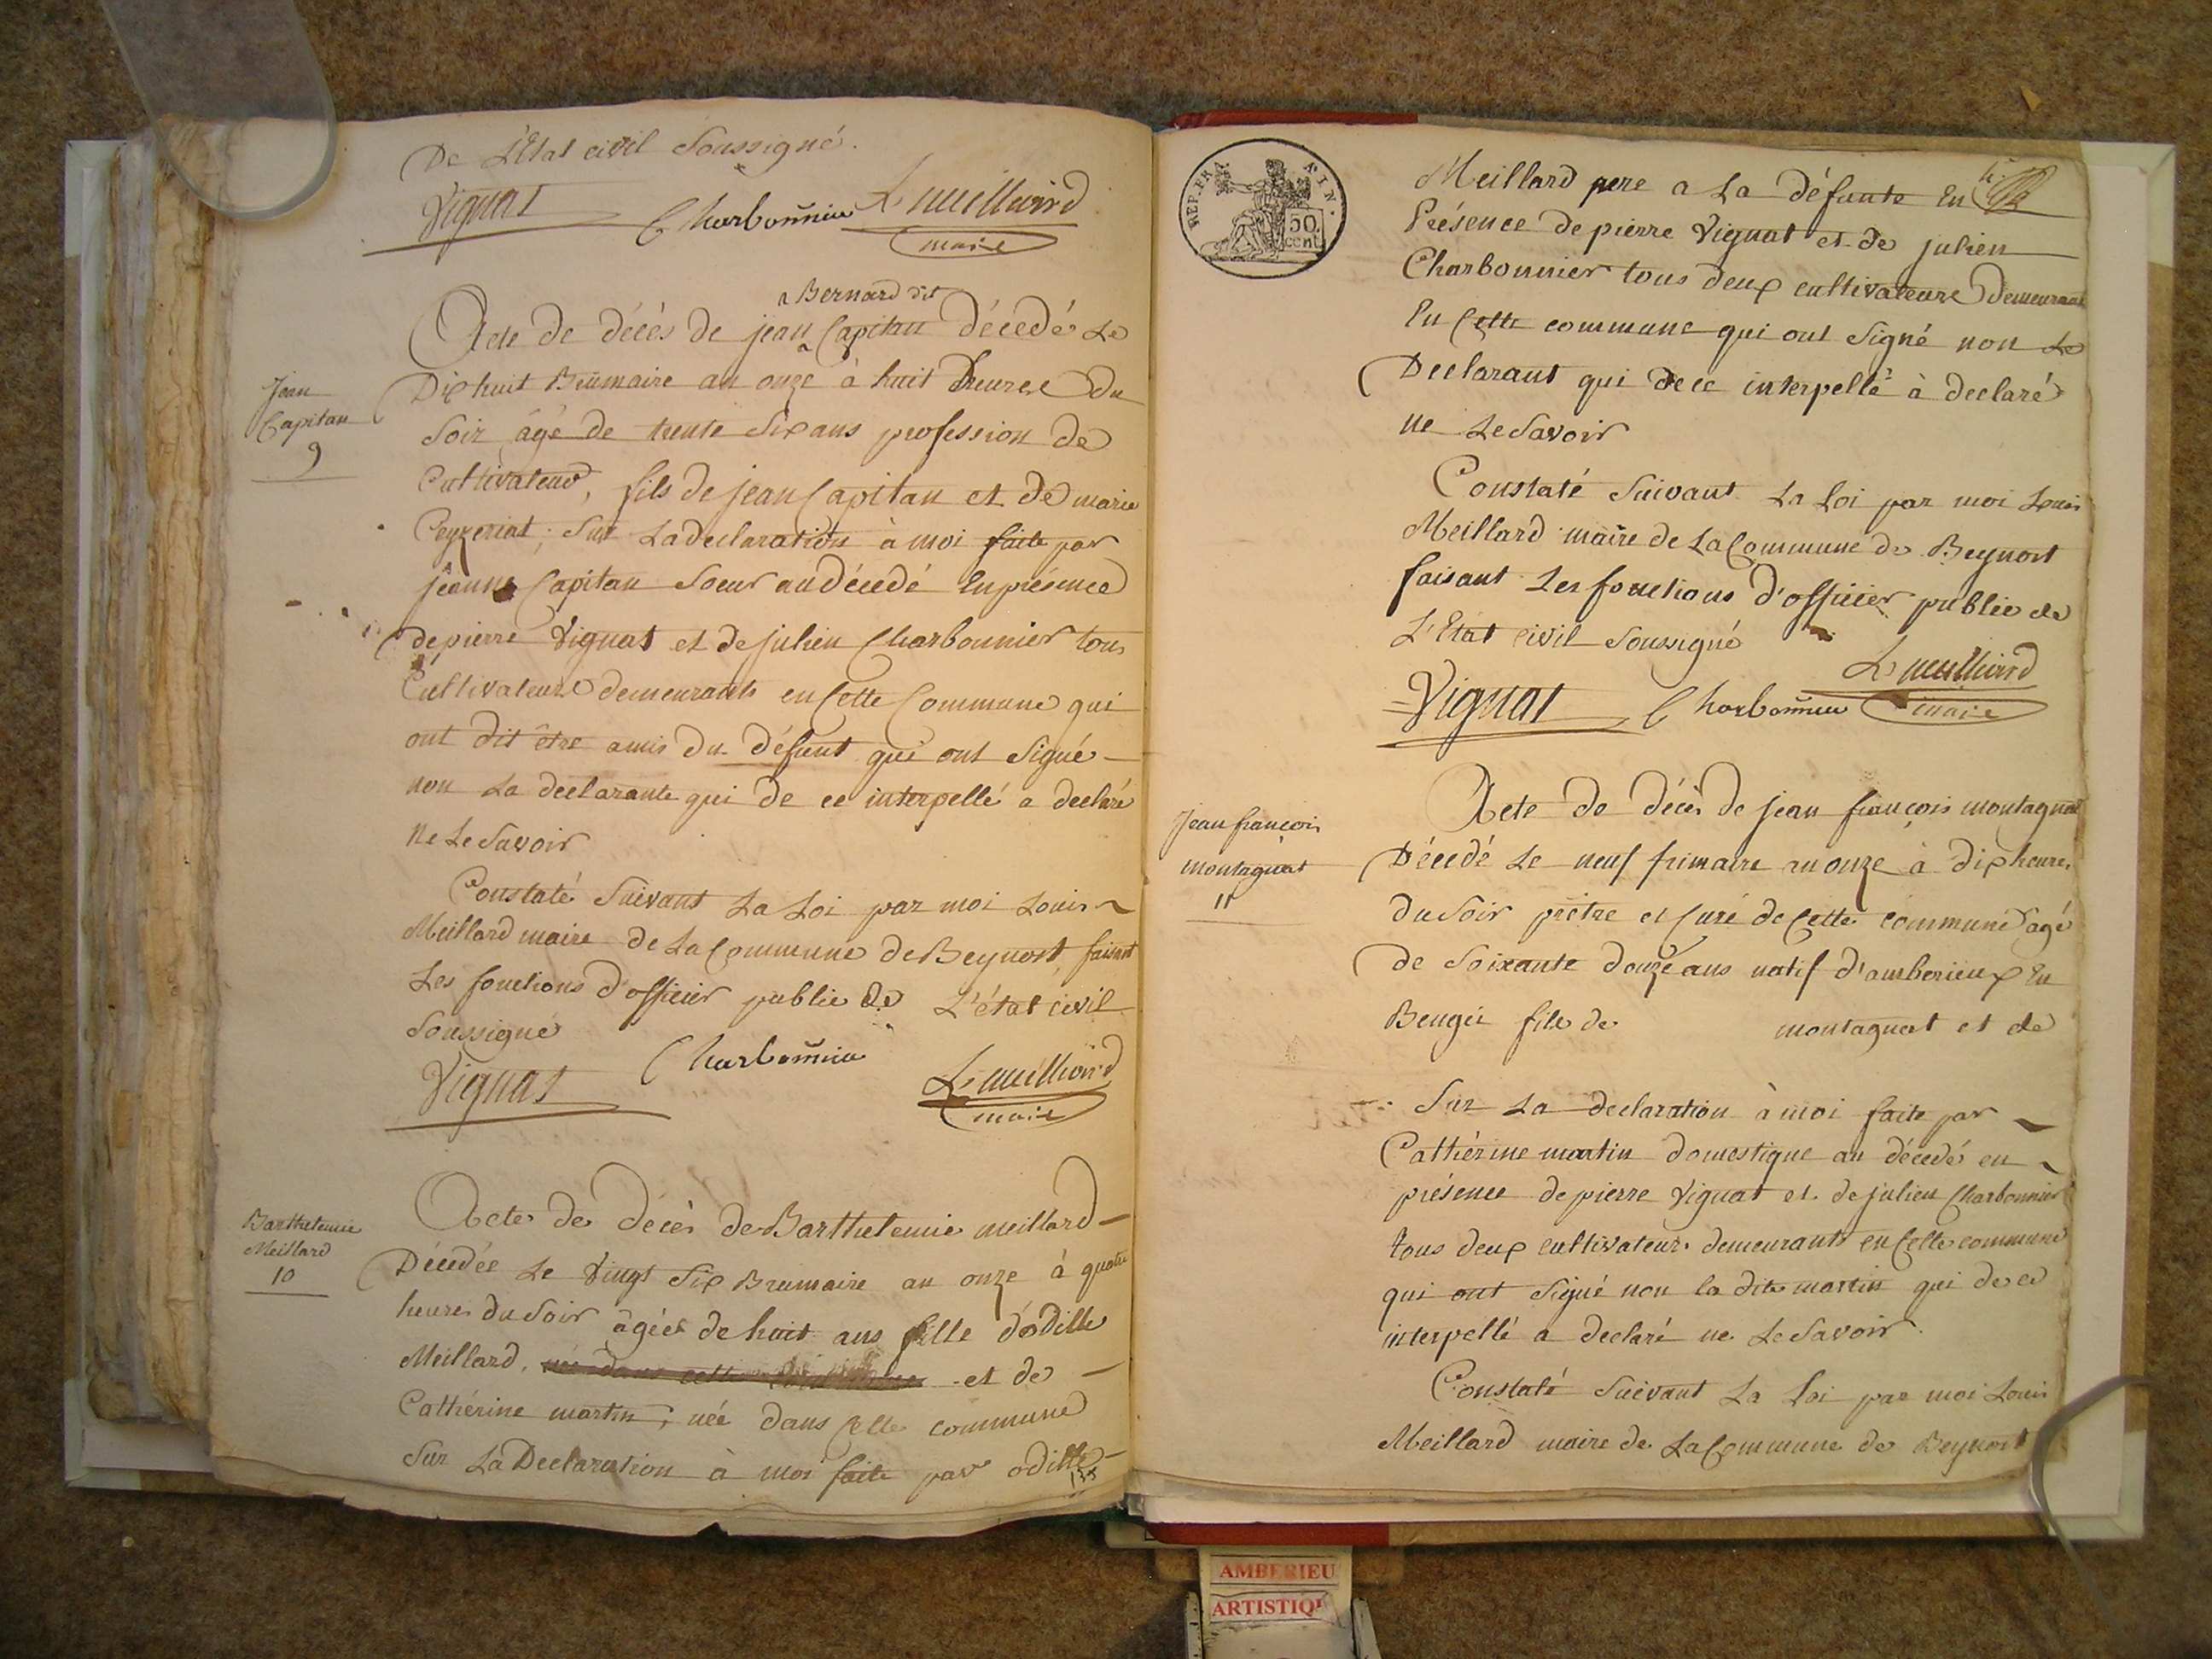 De L'Etat civil Soussigné.
Vignat Charbonnier L. meilliard
maire
Bernard dit
Acte de décès de jean Capitan décédé Le
Jean
Capitan
9
Dixhuit Brumaire an onze à huit heures du
Soir âgé de trente Six ans profession de
Cultivateur, fils de jean Capitan et de marie
Peyzeriat; Sur La declaration à moi faite par
jeanne Capitan Soeur au décedé En présence
de pierre Vignat et de julien Charbonnier tous
Cultivateurs demeurants en Cette Commune qui
ont dit être amis du défunt qui ont Signé
non La declarante qui de ce interpellé a declaré
ne Le Savoir
Constaté Suivant La Loi par moi Louis
Meillard maire de La Commune de Beynost, faisant
Les fonctions d'officier public de L'état civil
Soussigné
Vignat Charbonnier L. meilliard
maire
Barthelemie
Meillard
10
Acte de décès de Barthelemie meillard
Décedée Le Vingt Six Brumaire an onze à quatre
heures du Soir âgée de huit ans fille d'odille
Meillard, née dans cette et de
Cathérine martin, née dans Cette commune
Sur La Declaration à moi faite par odille
REP. FRA
50
cent.
Meillard pere a La défunte En
Présence de pierre Vignat et de julien
Charbonnier tous deux cultivateurs demeurant
En Cette commune qui ont Signé non Le
Declarant qui de ce interpellé à declaré
ne Le Savoir
Constaté Suivant La Loi par moi Louis
Meillard maire de La Commune de Beynost
faisant Les fonctions d'officier public de
L'Etat civil Soussigné
Vignat Charbonnier L. meilliard
maire
Jean françois
montagnat
11
Acte de décès de jean françois montagnat
Décedé Le neuf frimaire an onze à dix heures
du Soir prêtre et Curé de Cette commune agé
de Soixante douze ans natif d'amberieux En
Beugei fils de montagnat et de
Sur La declaration à moi faite par
Cathérine martin domestique au décedé en
présence de pierre Vignat et de julien Charbonnier
tous deux cultivateurs demeurants en Cette commune
qui ont Signé non la dite martin qui de ce
interpellé a declaré ne Le Savoir.
Constaté Suivant La Loi par moi Louis
Meillard maire de La Commune de Beynost
AMBERIEU
ARTISTIQU